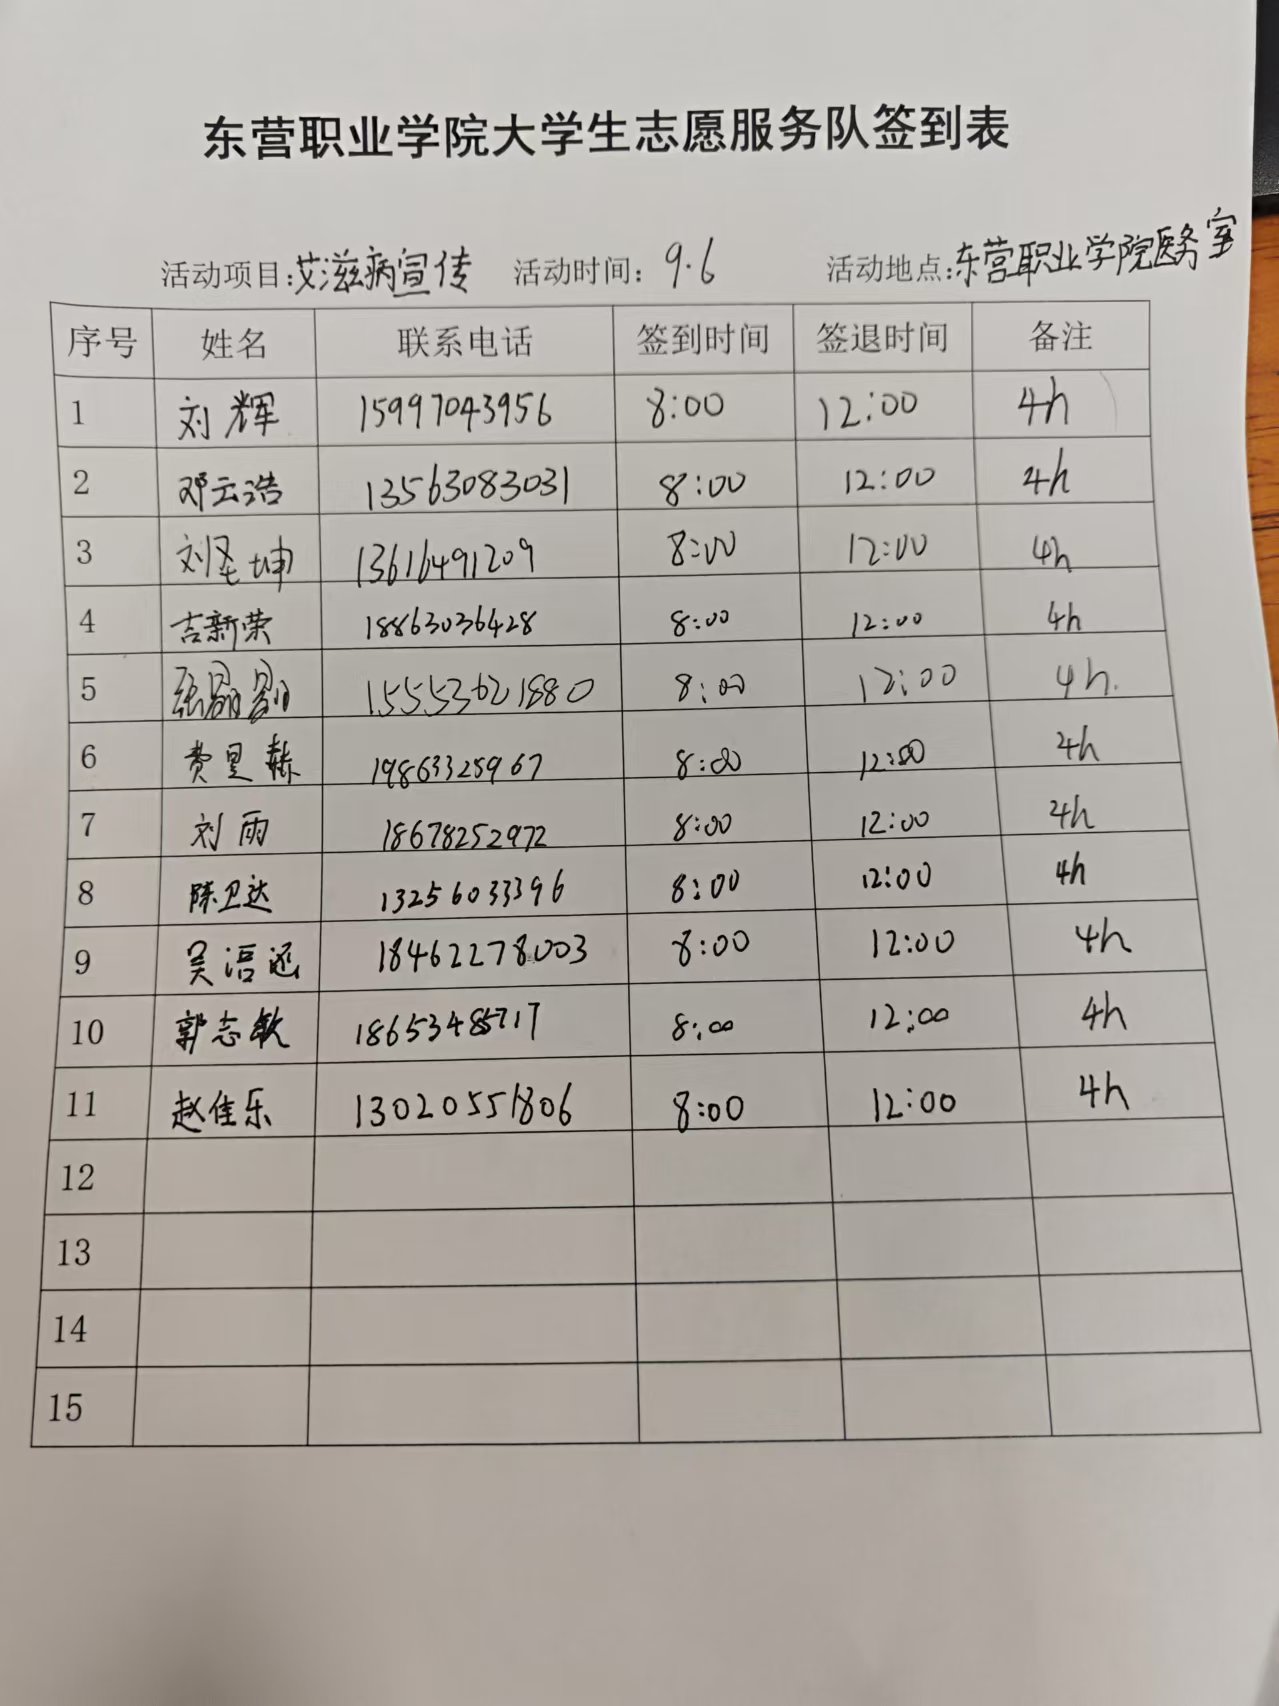 东营职业学院大学生志愿服务队签到表
活动项目:艾滋病宣传 活动时间: 9.6 活动地点:东营职业学院医务室
序号 姓名 联系电话 签到时间 签退时间 备注
1 刘辉 15997043956 8:00 12:00 4h
2 邓云浩 13563083031 8:00 12:00 4h
3 刘圣坤 13616491209 8:00 12:00 4h
4 吉新荣 18863036428 8:00 12:00 4h
5 张 15553621880 8:00 12:00 4h.
6 费昱赫 19863325967 8:00 12:00 4h
7 刘雨 18678252972 8:00 12:00 4h
8 陈卫达 13256033396 8:00 12:00 4h
9 吴浯遥 18462278003 8:00 12:00 4h
10 郭志敏 18653485717 8:00 12:00 4h
11 赵佳乐 13020551806 8:00 12:00 4h
12
13
14
15